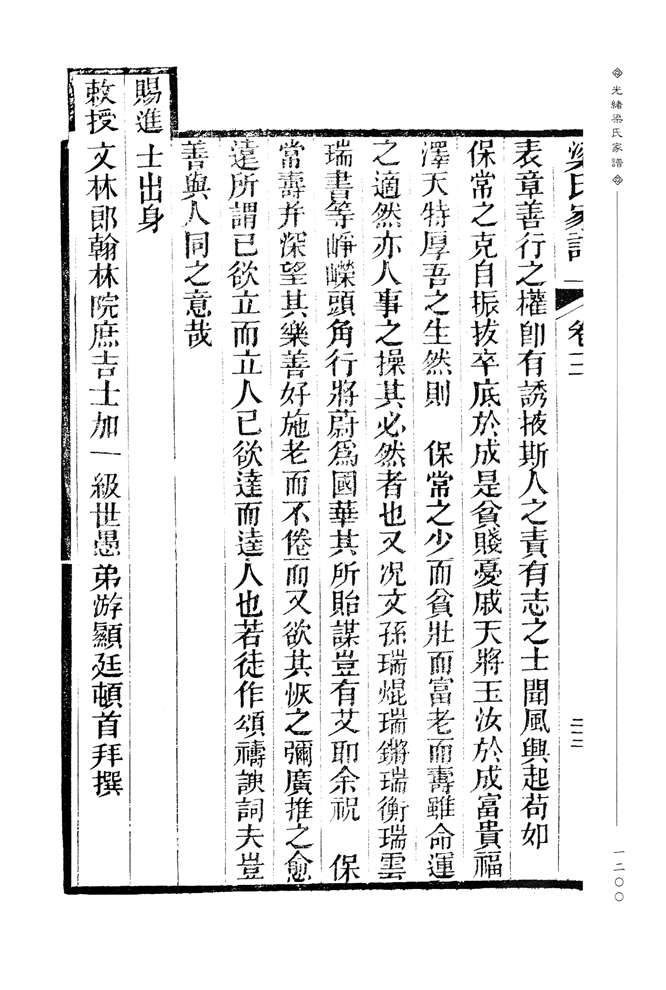 光緒梁氏家譜
一二〇〇
梁氏家譜 卷二 三三
表章善行之權卽有誘掖斯人之責有志之士聞風興起苟如
保常之克自振拔卒底於成是貧賤憂戚天將玉汝於成富貴福
澤天特厚吾之生然則 保常之少而貧壯而富老而壽雖命運
之適然亦人事之操其必然者也又况文孫瑞焜瑞鏘瑞衡瑞雲
瑞書等崢嶸頭角行將蔚爲國華其所貽謀豈有艾耶余祝 保
常壽并深望其樂善好施老而不倦而又欲其恢之彌廣推之愈
遠所謂已欲立而立人已欲達而達人也若徒作頌禱諛詞夫豈
善與人同之意哉
賜進士出身
敕授文林郎翰林院庶吉士加一級世愚弟游顯廷頓首拜撰